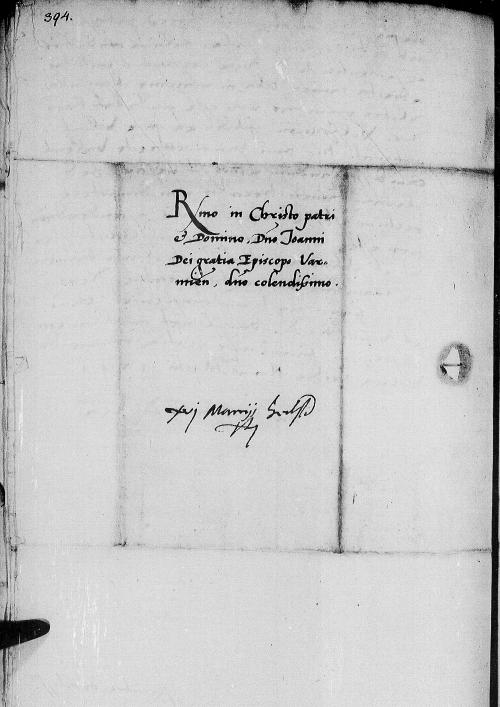 394.
Rmo in Christo patri
& Domino, Dno Joanni
Dei gratia Episcopo Var-
mien, dno colendissimo.
xvj Marcij